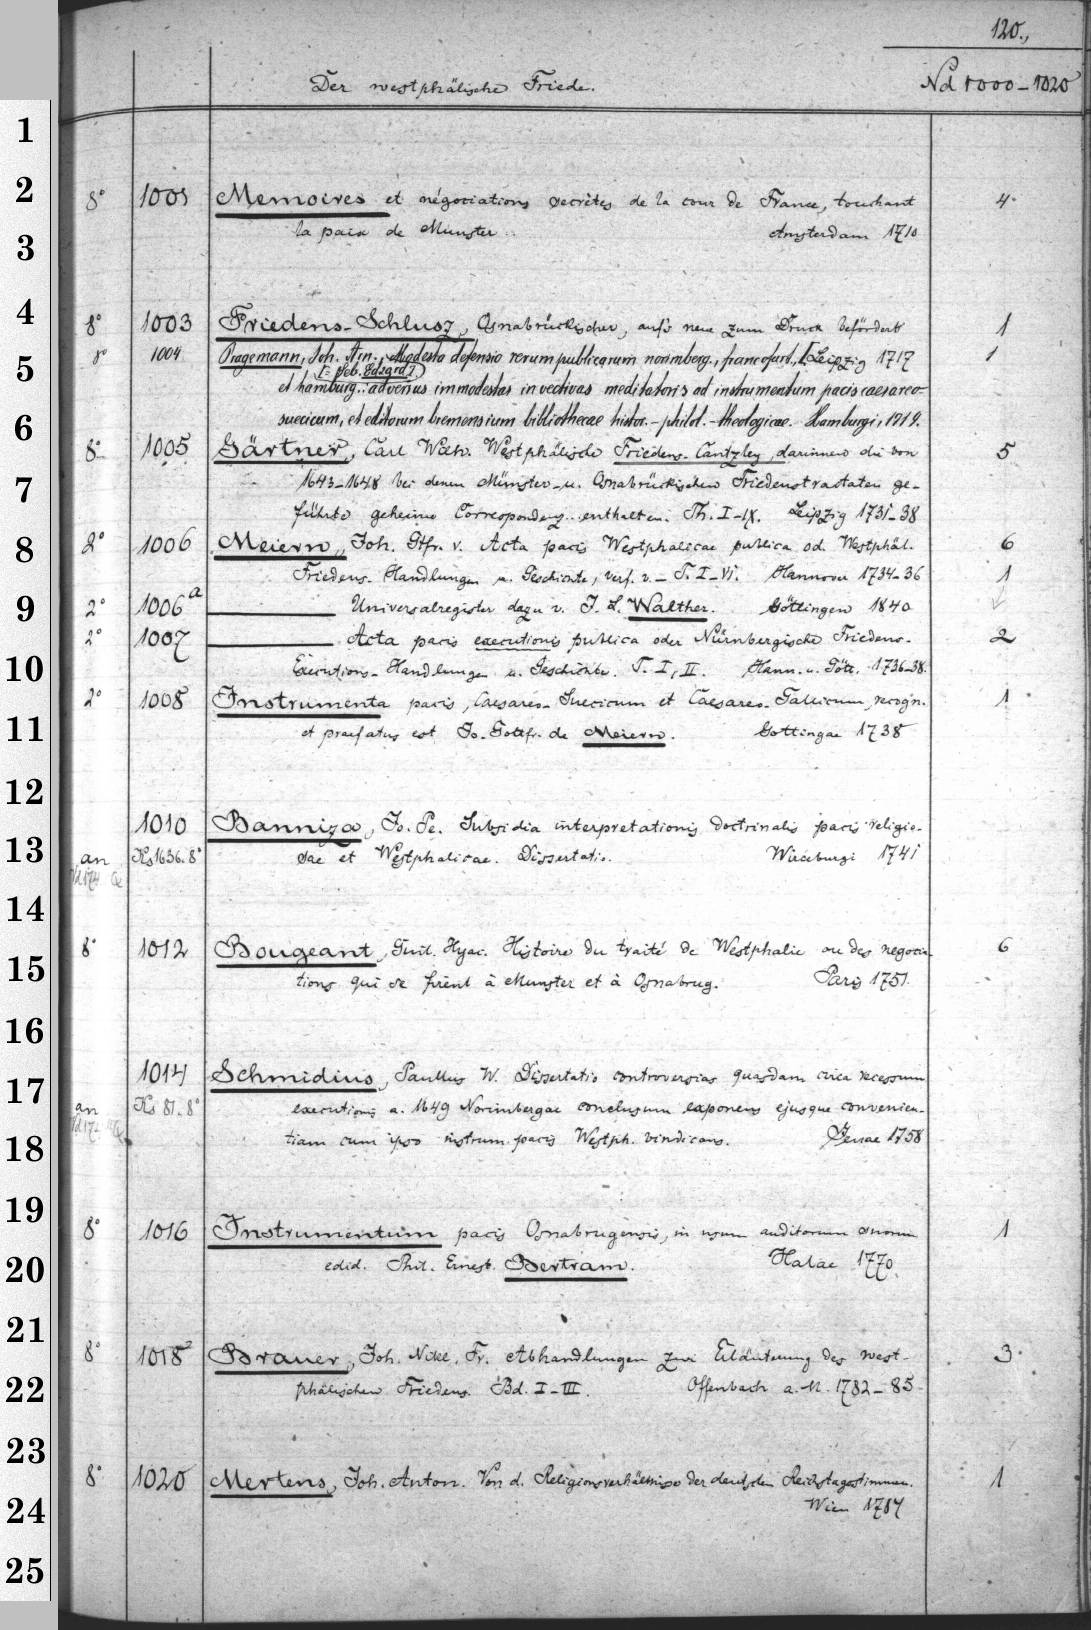 120.,
Der westphälische Friede. Nd 1000-1020
1
2
3
4
5
6
7
8
9
10
11
12
13
14
15
16
17
18
19
20
21
22
23
24
25
8° 1001 Memoires et négociations secrètes de la cour de France, touchant 4
la paix de Munster Amsterdam 1710
8° 1003 Friedens-Schlusz, Osnabrückischer, aufs neue zum Druck befördert 1
Leipzig 1717
8° 1004 Pragemann, Joh. Modesta defensio rerumpublicarum norimberg., francofurt., 1
[= Seb. Edzardi]
et hamburg.: adversus immodestas invectivas meditatoris ad instrumentum pacis caesareo-
suecicum, et editorum bremensium bibliothecae histor.-philol.-theologicae. Hamburgi, 1719.
8° 1005 Gärtner, Carl Wilh. Westphälische Friedens-Cantzley, darinnen die von 5
1643-1648 bei denen Münster- u. Osnabrückischen Friedenstractaten ge-
führte geheime Correspondenz.. enthalten. Th. I-IX. Leipzig 1731-38
2° 1006 Meiern, Joh. Gtfr. v. Acta pacis Westphalicae publica od. Westphäl. 6
Friedens-Handlungen u. Geschichte, verf. v. - T. I-VI. Hannover 1734-36 1
2° 1006a Universalregister dazu v. J. L. Walther. Göttingen 1840
2° 1007 Acta pacis executionis publica oder Nürnbergische Friedens- 2
Executions-Handlungen u. Geschichte. T. I, II. Hann. u. Gött. 1736-38.
2° 1008 Instrumenta pacis, Caesareo-Suecicum et Caesareo-Gallicum, recogn. 1
et praefatus est Jo. Gottfr. de Meiern. Gottingae 1738
1010 Banniza, Jo. Pe. Subsidia interpretationis doctrinalis pacis religio-
an Ks 1636. 8° sae et Westphalicae. Dissertatio. Wirceburgi 1741
8° 1012 Bougeant, Guil. Hyac. Histoire du traité de Westphalie ou des negocia- 6
tions qui se firent à Munster et à Osnabrug. Paris 1751.
1014 Schmidius, Paullus W. Dissertatio controversias quasdam circa recessum
an Ks 81. 8° executionis a. 1649 Norimbergae conclusum exponens ejusque convenien-
tiam cum ipso instrum. pacis Westph. vindicans. Jenae 1758
8° 1016 Instrumentum pacis Osnabrugensis, in usum auditorum suorum 1
edid. Phil. Ernest. Bertram. Halae 1770.
8° 1018 Brauer, Joh. Nikl. Fr. Abhandlungen zur Erläuterung des west- 3
phälischen Friedens. Bd. I-III. Offenbach a. M. 1782-85
8° 1020 Mertens, Joh. Anton. Von d. Religionsverhältnisse der deutschen Reichstagsstimmen. 1
Wien 1784